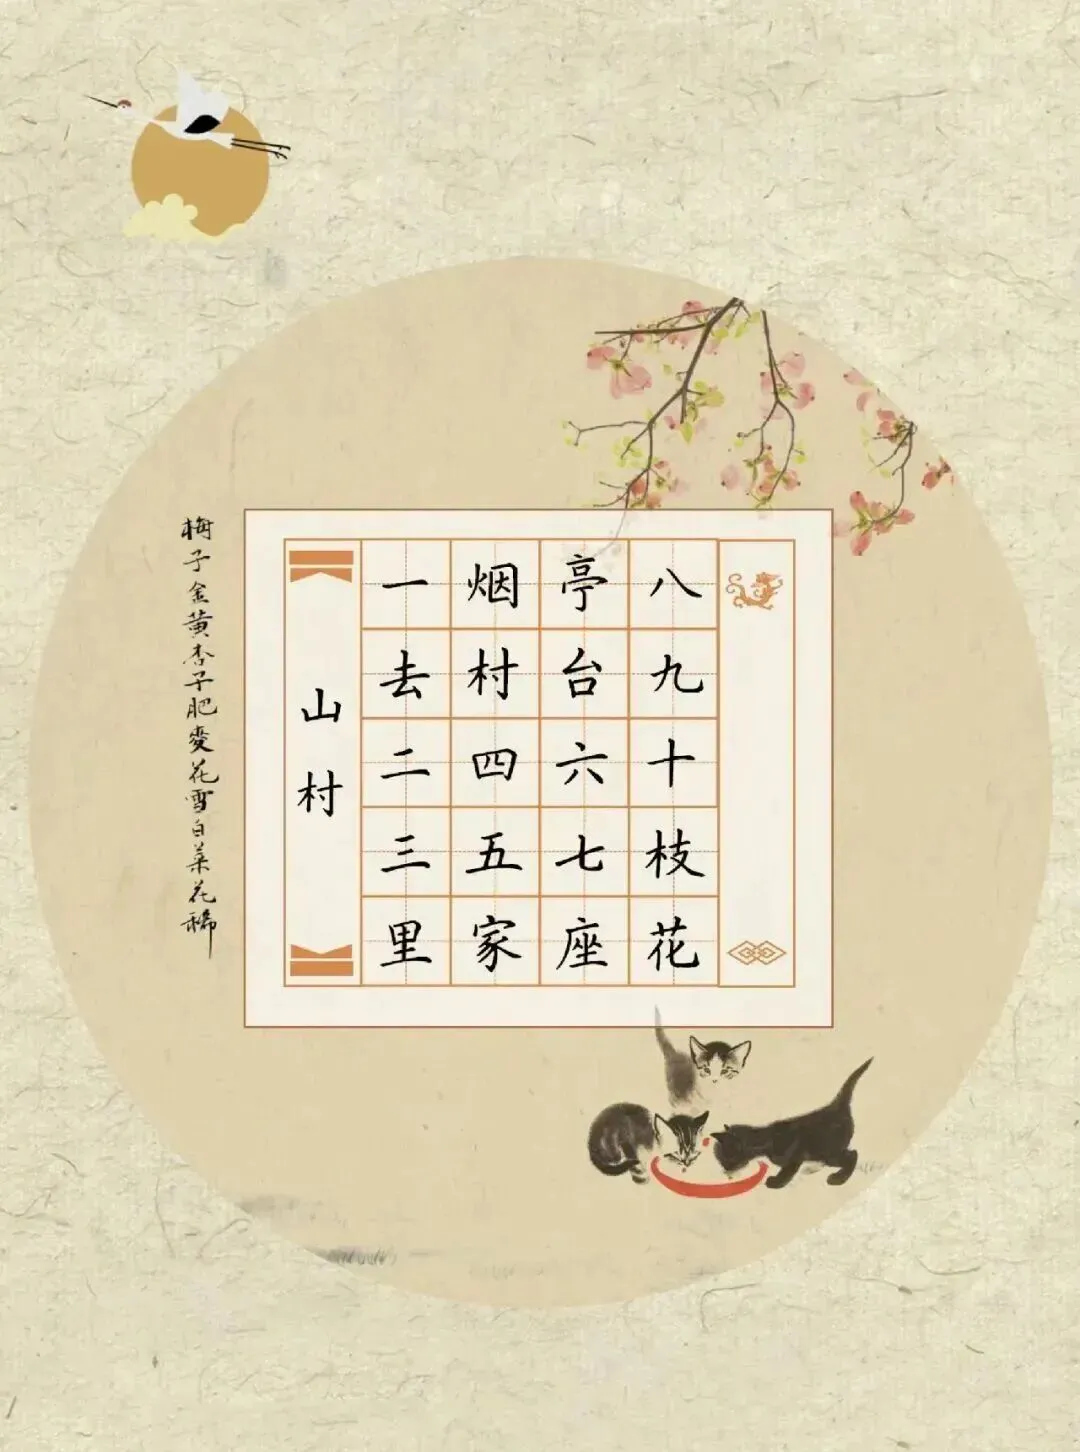 山村
一去二三里
烟村四五家
亭台六七座
八九十枝花
梅子金黄杏子肥麦花雪白菜花稀